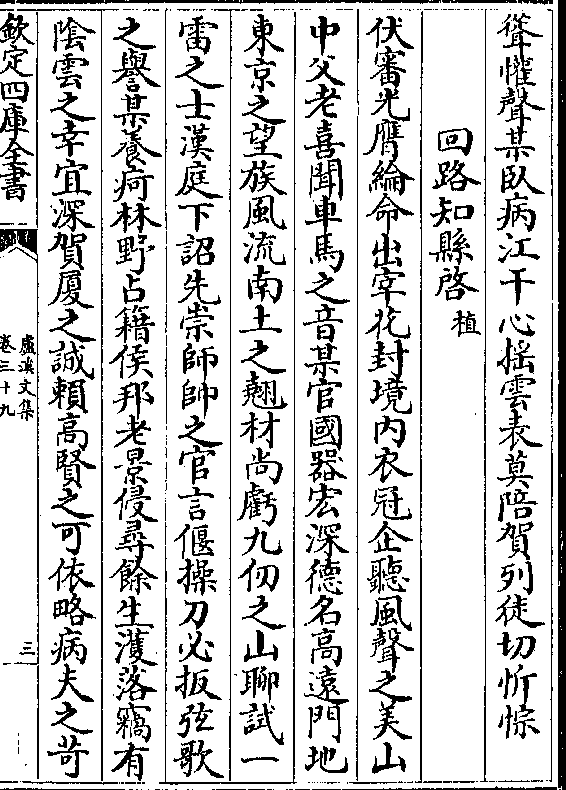 聳懽聲某臥病江干心揺雲表莫陪賀列徒切忻悰
回路知縣啓植
伏審光膺綸命出宰花封境内衣冠企聽風聲之美山
中父老喜聞車馬之音某官國器宏深德名高遠門地
東京之望族風流南土之翹材尚虧九仞之山聊試一
雷之士漢庭下詔先崇師帥之官言偃操刀必扳弦歌
之譽某養疴林野占籍侯邦老景侵尋餘生濩落竊有
隂雲之幸宜深賀厦之誠賴高賢之可依略病夫之苛
欽定四庫全書
盧溪文集
卷三十九
三